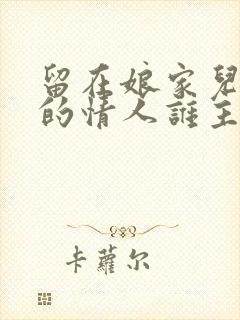 留在娘家兒
的情人誰主
卡蘿尔